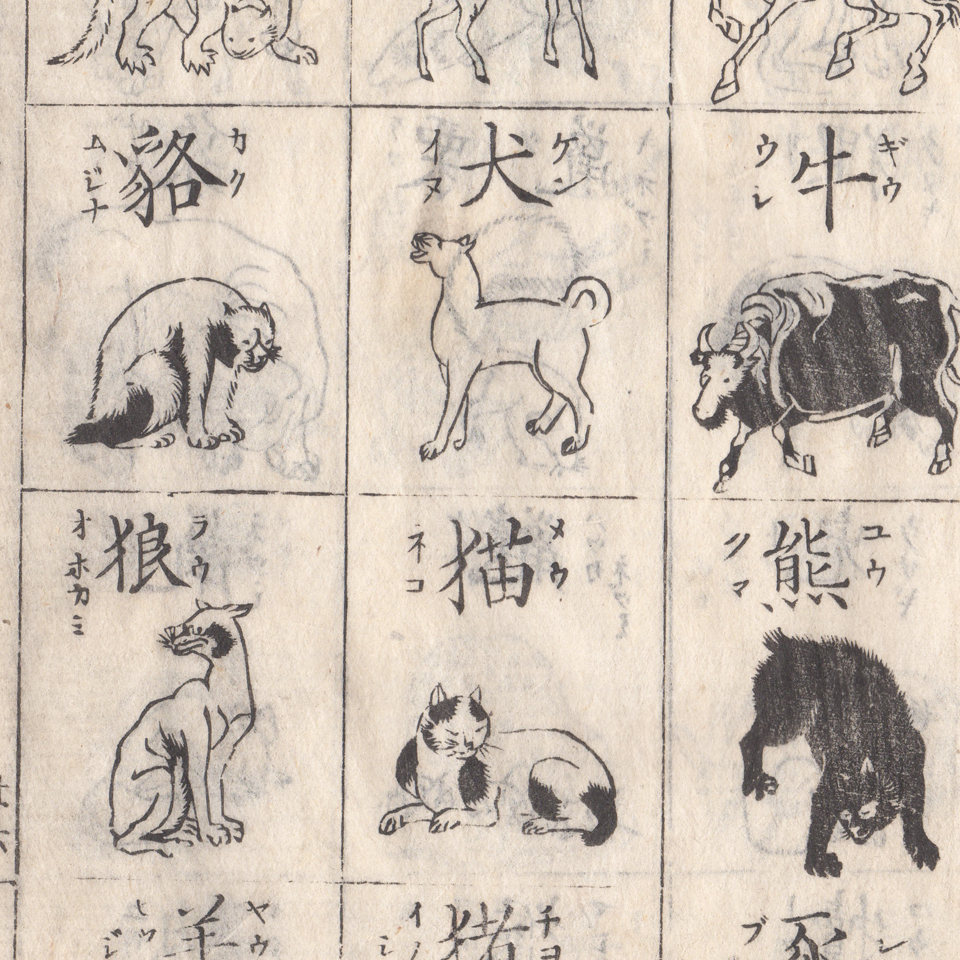 ギウ
牛
ウシ
ケン
犬
イヌ
カク
貉
ムジナ
ユウ
熊
クマ
メウ
猫
ネコ
ラウ
狼
オホカミ
豕
チヨ
猪
ヤウ
羊